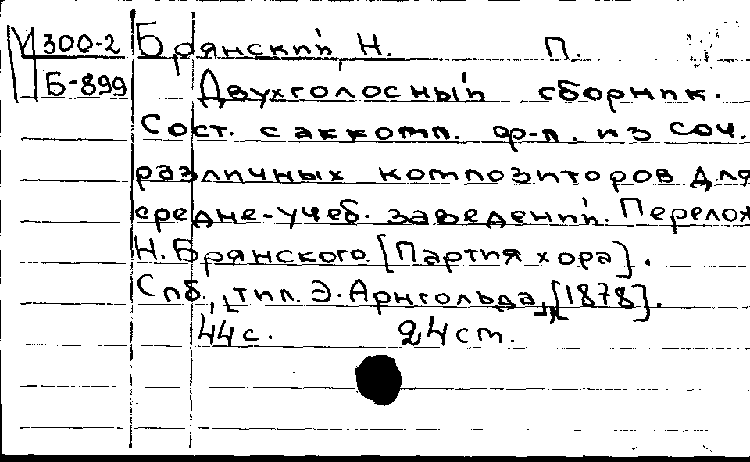 М 300-2 Брянский, Н. П.
Б-899 Двухголосный сборник.
Сост. с аккомп. ф-п. из соч.
различных композиторов для
средне-учеб. заведений. Перелож
Н. Брянского. [Партия хора].
Спб., тип. Э. Арнгольда, [1878].
44 с. 24 cm.